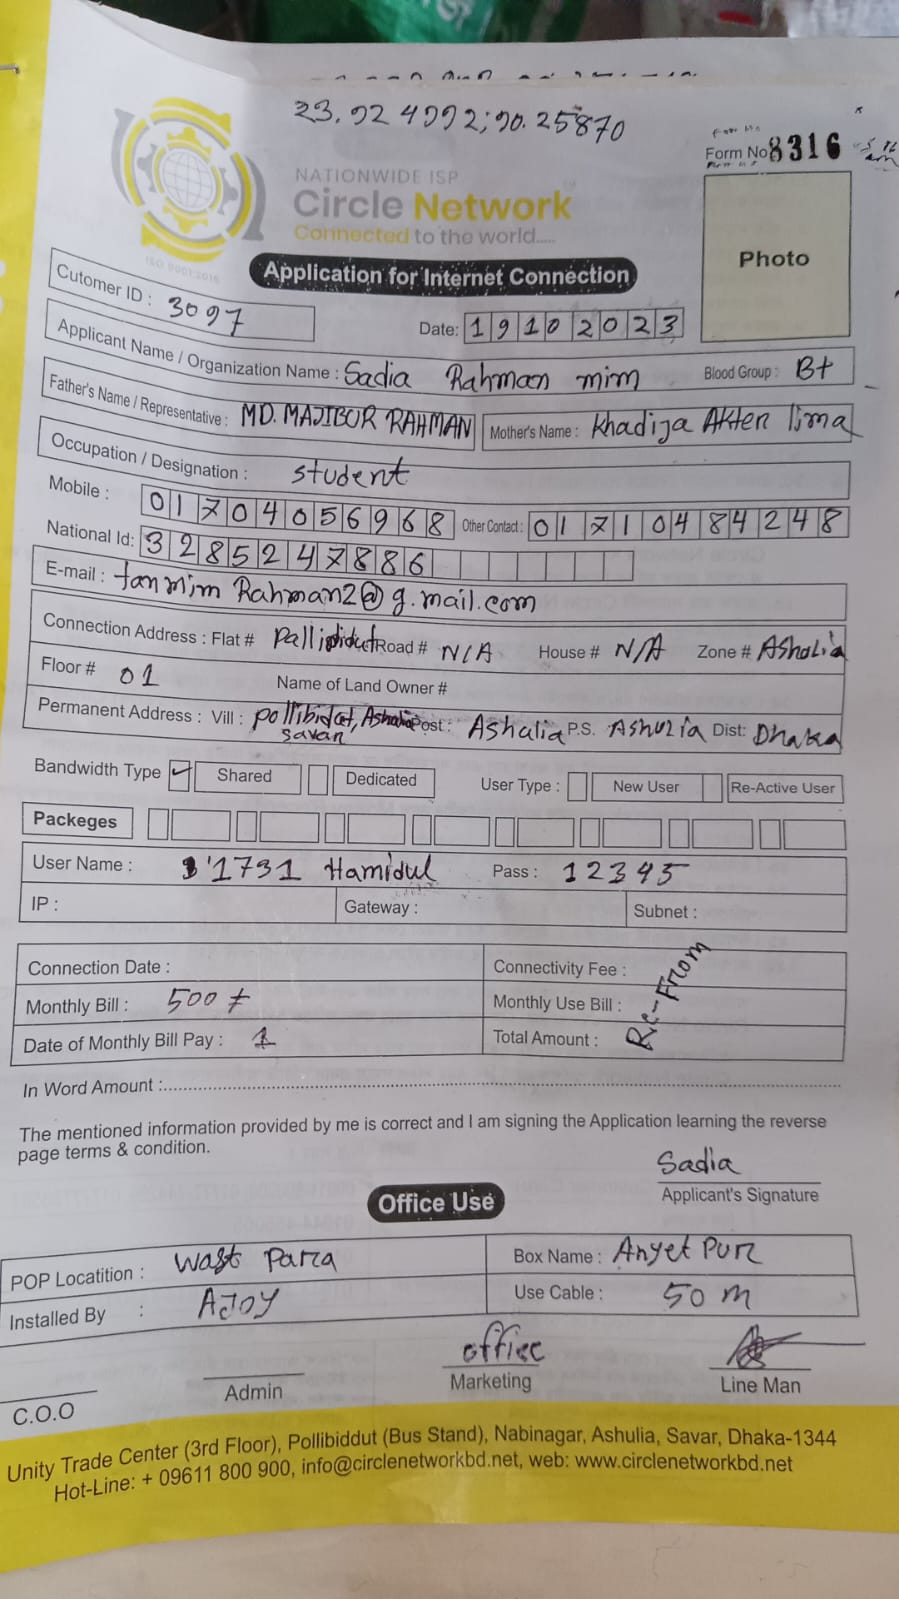 23.924992;90.25870
Form No 8316
NATIONWIDE ISP
Circle Network
Connected to the world.....
ISO 9001:2015
Application for Internet Connection
Photo
Cutomer ID : 3097
Date: 19102023
Applicant Name / Organization Name : Sadia Rahman mim Blood Group : B+
Father's Name / Representative : MD. MAJIBUR RAHMAN Mother's Name : Khadija Akter lima
Occupation / Designation : student
Mobile : 01704056968 Other Contact : 01710484248
National Id: 3285247886
E-mail : tanmim Rahman2@g.mail.com
Connection Address : Flat # Road # N/A House # N/A Zone # Ashalia
Floor # 01 Name of Land Owner #
Permanent Address : Vill : pollibidut, Ashalia savar Post : Ashalia P.S. Ashulia Dist: Dhaka
Bandwidth Type ✓ Shared Dedicated User Type : New User Re-Active User
Packeges
User Name : 1731 Hamidul Pass : 12345
IP : Gateway : Subnet :
Connection Date : Connectivity Fee :
Monthly Bill : 500 Monthly Use Bill :
Date of Monthly Bill Pay : 1 Total Amount :
Re-From
In Word Amount :
The mentioned information provided by me is correct and I am signing the Application learning the reverse
page terms & condition.
Sadia
Applicant's Signature
Office Use
POP Locatition : Wast Parra Box Name : Anyet Pur
Installed By : AJOY Use Cable : 50 m
office
C.O.O Admin Marketing Line Man
Unity Trade Center (3rd Floor), Pollibiddut (Bus Stand), Nabinagar, Ashulia, Savar, Dhaka-1344
Hot-Line: + 09611 800 900, info@circlenetworkbd.net, web: www.circlenetworkbd.net